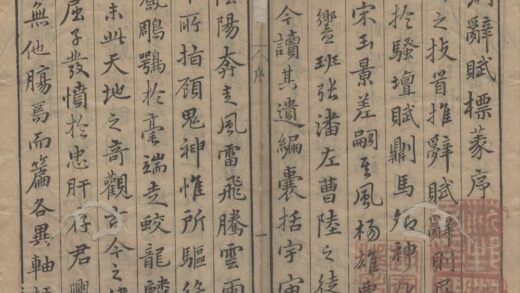 辭賦標蒙序
之技首推辭賦辭則
於騷壇賦鼎馬
宋玉景差嗣其風楊雄
響班張潘左曹陸之徒
今讀其遺編囊括宇宙
序
一
陰陽奔走風雷飛騰雲雨
所指顧鬼神惟所驅
鵰鶚於毫端走蛟龍
未此天地之奇觀古今之
屈子發憤於忠肝
無他腸焉而篇各異軸